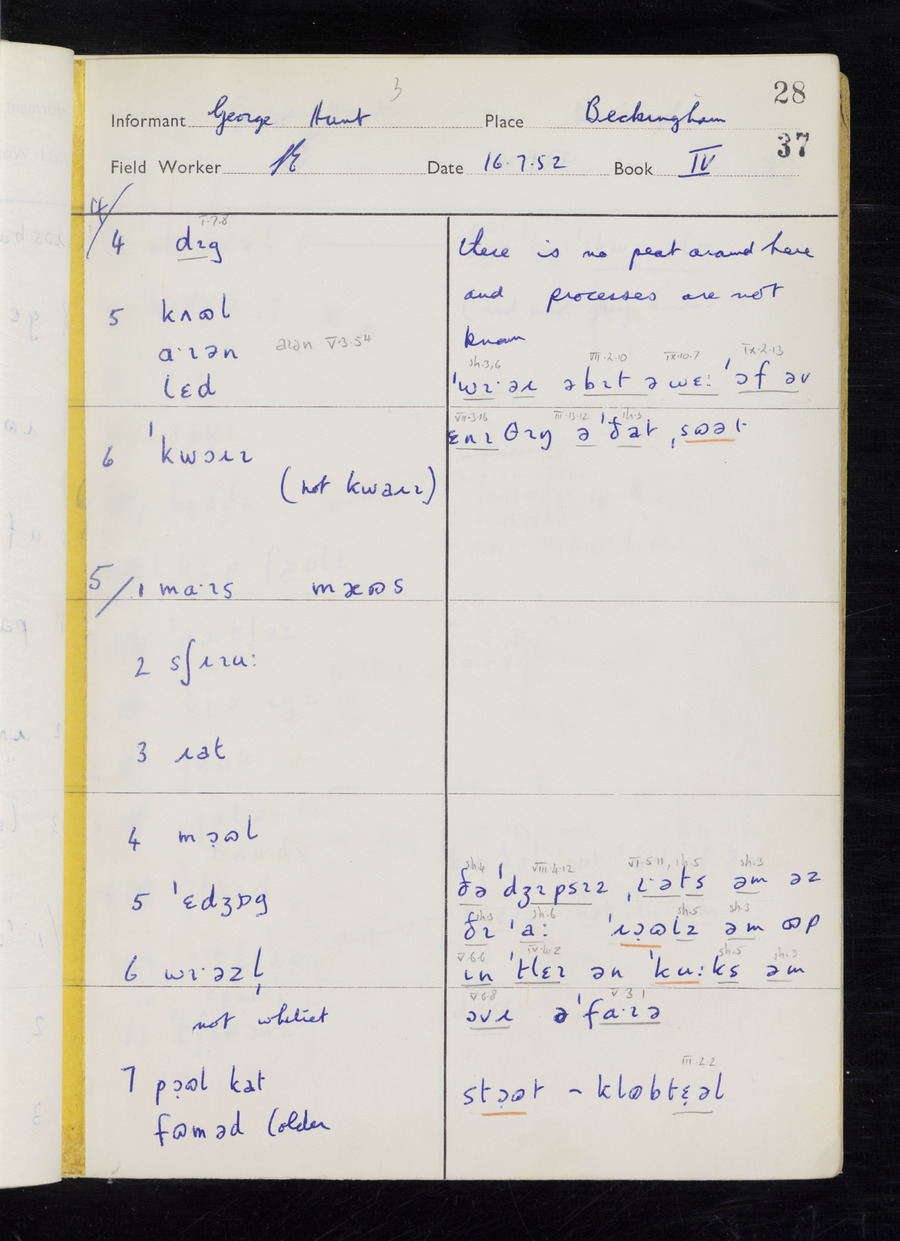 3
28
Informant George Hunt Place Beckingham
37
Field Worker Date 16.7.52 Book IV
4/
V.7.8
4 dɪg
there is no peat around here
and processes are not
known
5 kʌɷl
a·ɪən aɪən V.3.5⁴
lɛd
sh.3,6 VII.2.10 IX.10.7 IX.2.13
ˈwɪ·əɹ əbɪt ə wɛ: ˈɔf əv
VII.3.16 III.13.12 sh.3
ɛnɪ θɪŋ ə ˈðat ˌsɷət
6 ˈkwɔɹɪ
(not kwaɹɪ)
5/1 ma·ɪs mæɷs
2 sʃɹɪu:
3 ɹat
4 mɔ̣ɷl
5 ˈɛdʒɒg
sh.4 VIII.4.12 VI.5.11, sh.5 sh.3
ðə ˈdʒɪpsɪz ˌɪ·əts əm əz
sh.3 sh.6 sh.5 sh.3
ðɪ ˈa: ˈɹɔ̣ɷlz əm ɷp
6 wɪ·əzl̩
V.6.6 IV.4.2 sh.5 sh.3
ɪn ˈtlɛɪ ən ˈku:ks əm
not
V.6.8 V.3.1
ɔvɹ ə ˈfa·ɪə
7 pɔ̣ɷl kat
III.2.2
stɔ̣ɷt ~ klɷbtɛ̣əl
fɷməd (older